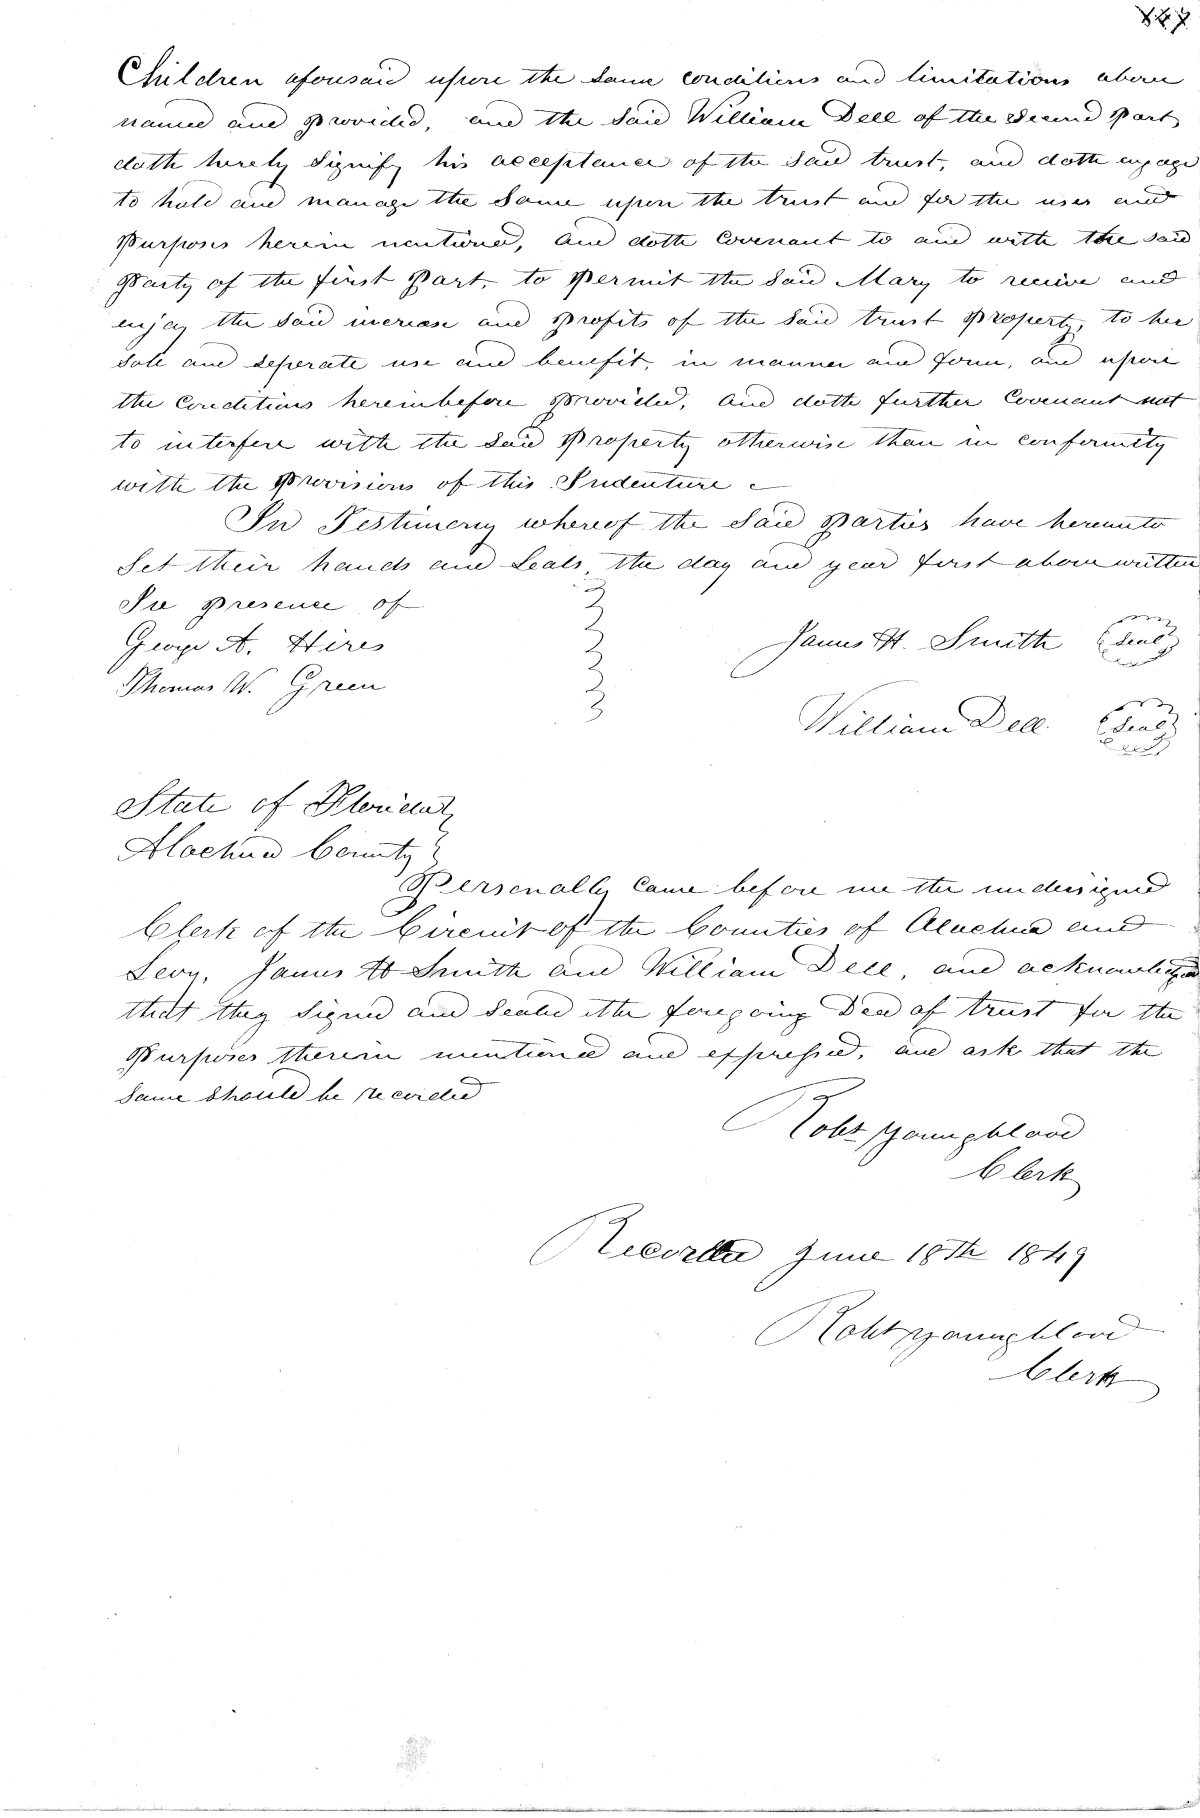 Children aforesaid upon the same conditions and limitations above
named and provided, and the said William Dell of the Second Part,
doth hereby signify his acceptance of the said trust, and doth engage
to hold and manage the Same upon the trust and for the uses and
Purposes herein mentioned, and doth Covenant to and with the said
Party of the first Part, to Permit the said Mary to receive and
enjoy the said increase and Profits of the said trust Property, to her
sole and seperate use and benefit, in manner and form, and upon
the Conditions hereinbefore provided, And doth further Covenant not
to interfere with the said Property otherwise than in conformity
with the Provisions of this Indenture
In Testimony whereof the Said Parties have hereunto
Set their hands and Seals, the day and year first above written
In presence of
George A. Hires
Thomas W. Green
James H. Smith (Seal)
William Dell (Seal)
State of Florida
Alachua County
Personally Came before me the undersigned
Clerk of the Circuit of the Counties of Alachua and
Levy, James H Smith and William Dell, and acknowledged
that they Signed and Sealed the foregoing Deed of trust for the
Purposes therein mentioned and expressed, and ask that the
same should be recorded
Robt Youngblood
Clerk
Recorded June 18th 1849
Robt Youngblood
Clerk